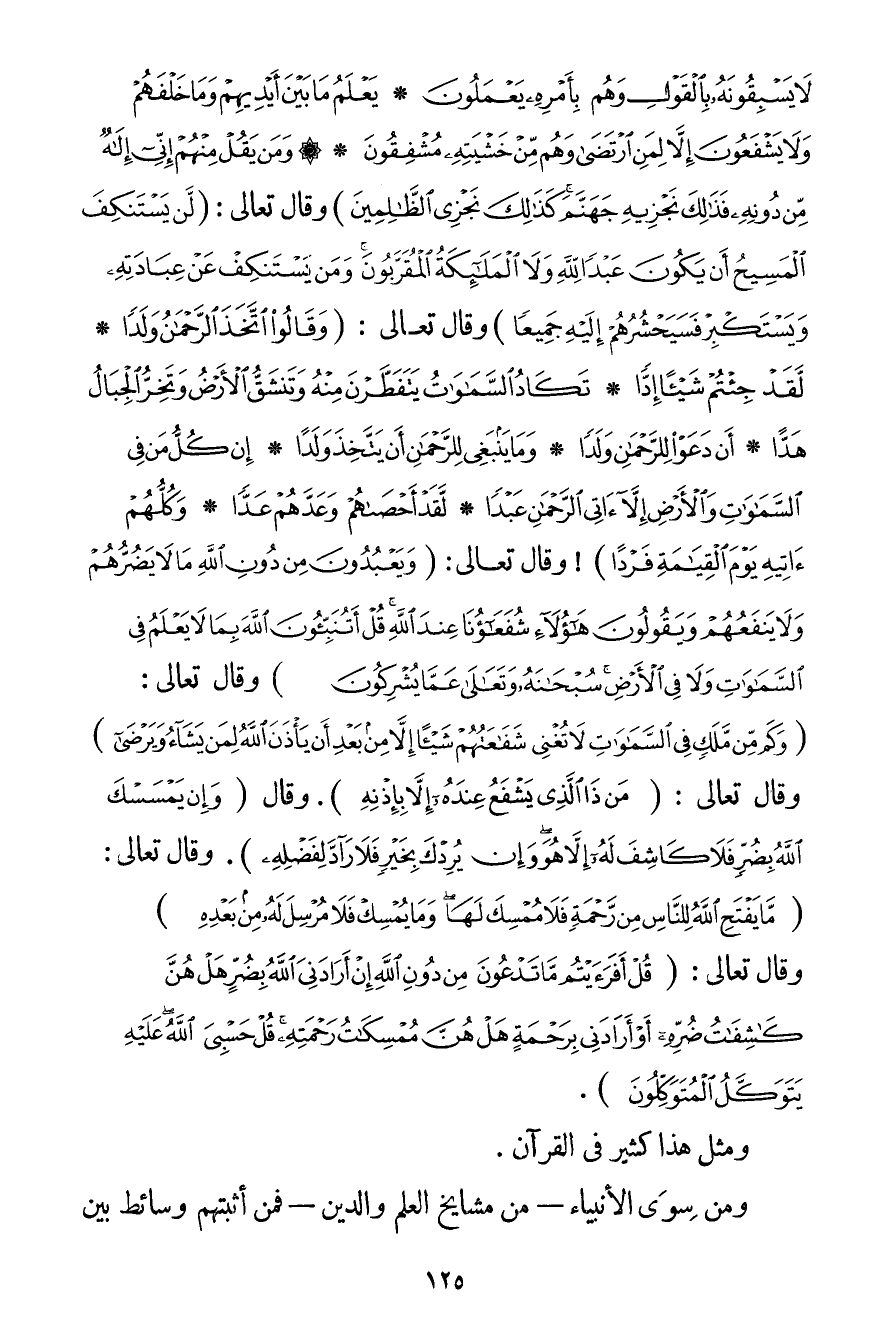 لَا يَسْبِقُونَهُ بِٱلْقَوْلِ وَهُم بِأَمْرِهِ يَعْمَلُونَ * يَعْلَمُ مَا بَيْنَ أَيْدِيهِمْ وَمَا خَلْفَهُمْ
وَلَا يَشْفَعُونَ إِلَّا لِمَنِ ٱرْتَضَىٰ وَهُم مِّنْ خَشْيَتِهِ مُشْفِقُونَ * ۞ وَمَن يَقُلْ مِنْهُمْ إِنِّىٓ إِلَٰهٌ
مِّن دُونِهِ فَذَٰلِكَ نَجْزِيهِ جَهَنَّمَ ۚ كَذَٰلِكَ نَجْزِى ٱلظَّٰلِمِينَ ) وقال تعالى : ( لَّن يَسْتَنكِفَ
ٱلْمَسِيحُ أَن يَكُونَ عَبْدًا لِّلَّهِ وَلَا ٱلْمَلَٰٓئِكَةُ ٱلْمُقَرَّبُونَ ۚ وَمَن يَسْتَنكِفْ عَنْ عِبَادَتِهِ
وَيَسْتَكْبِرْ فَسَيَحْشُرُهُمْ إِلَيْهِ جَمِيعًا ) وقال تعالى : ( وَقَالُوا۟ ٱتَّخَذَ ٱلرَّحْمَٰنُ وَلَدًا *
لَّقَدْ جِئْتُمْ شَيْـًٔا إِدًّا * تَكَادُ ٱلسَّمَٰوَٰتُ يَتَفَطَّرْنَ مِنْهُ وَتَنشَقُّ ٱلْأَرْضُ وَتَخِرُّ ٱلْجِبَالُ
هَدًّا * أَن دَعَوْا۟ لِلرَّحْمَٰنِ وَلَدًا * وَمَا يَنۢبَغِى لِلرَّحْمَٰنِ أَن يَتَّخِذَ وَلَدًا * إِن كُلُّ مَن فِى
ٱلسَّمَٰوَٰتِ وَٱلْأَرْضِ إِلَّآ ءَاتِى ٱلرَّحْمَٰنِ عَبْدًا * لَّقَدْ أَحْصَىٰهُمْ وَعَدَّهُمْ عَدًّا * وَكُلُّهُمْ
ءَاتِيهِ يَوْمَ ٱلْقِيَٰمَةِ فَرْدًا ) ! وقال تعالى : ( وَيَعْبُدُونَ مِن دُونِ ٱللَّهِ مَا لَا يَضُرُّهُمْ
وَلَا يَنفَعُهُمْ وَيَقُولُونَ هَٰٓؤُلَآءِ شُفَعَٰٓؤُنَا عِندَ ٱللَّهِ ۚ قُلْ أَتُنَبِّـُٔونَ ٱللَّهَ بِمَا لَا يَعْلَمُ فِى
ٱلسَّمَٰوَٰتِ وَلَا فِى ٱلْأَرْضِ ۚ سُبْحَٰنَهُ وَتَعَٰلَىٰ عَمَّا يُشْرِكُونَ ) وقال تعالى :
( وَكَم مِّن مَّلَكٍ فِى ٱلسَّمَٰوَٰتِ لَا تُغْنِى شَفَٰعَتُهُمْ شَيْـًٔا إِلَّا مِنۢ بَعْدِ أَن يَأْذَنَ ٱللَّهُ لِمَن يَشَآءُ وَيَرْضَىٰٓ )
وقال تعالى : ( مَن ذَا ٱلَّذِى يَشْفَعُ عِندَهُۥٓ إِلَّا بِإِذْنِهِ ) . وقال ( وَإِن يَمْسَسْكَ
ٱللَّهُ بِضُرٍّ فَلَا كَاشِفَ لَهُۥٓ إِلَّا هُوَ ۖ وَإِن يُرِدْكَ بِخَيْرٍ فَلَا رَآدَّ لِفَضْلِهِ ) . وقال تعالى :
( مَّا يَفْتَحِ ٱللَّهُ لِلنَّاسِ مِن رَّحْمَةٍ فَلَا مُمْسِكَ لَهَا ۖ وَمَا يُمْسِكْ فَلَا مُرْسِلَ لَهُ مِنۢ بَعْدِهِ )
وقال تعالى : ( قُلْ أَفَرَءَيْتُم مَّا تَدْعُونَ مِن دُونِ ٱللَّهِ إِنْ أَرَادَنِىَ ٱللَّهُ بِضُرٍّ هَلْ هُنَّ
كَٰشِفَٰتُ ضُرِّهِۦٓ أَوْ أَرَادَنِى بِرَحْمَةٍ هَلْ هُنَّ مُمْسِكَٰتُ رَحْمَتِهِ ۚ قُلْ حَسْبِىَ ٱللَّهُ ۖ عَلَيْهِ
يَتَوَكَّلُ ٱلْمُتَوَكِّلُونَ ) .
ومثل هذا كثير فى القرآن .
ومن سِوَى الأنبياء — من مشايخ العلم والدين — فمن أثبتهم وسائط بين
١٢٥